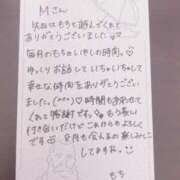 Mさん
次は もちと遊んでくれて
ありがとうございました
毎月のもちゃいちゃの時間。
ゆっくりお話していちゃいちゃして
幸せな時間をありがとうござい
ました。(^^) 時間も合わせて
くれて感謝です。もう長い
付き合いだけどこれからもよろしく
です 8月も会えるの楽しみに
してますね。
もち